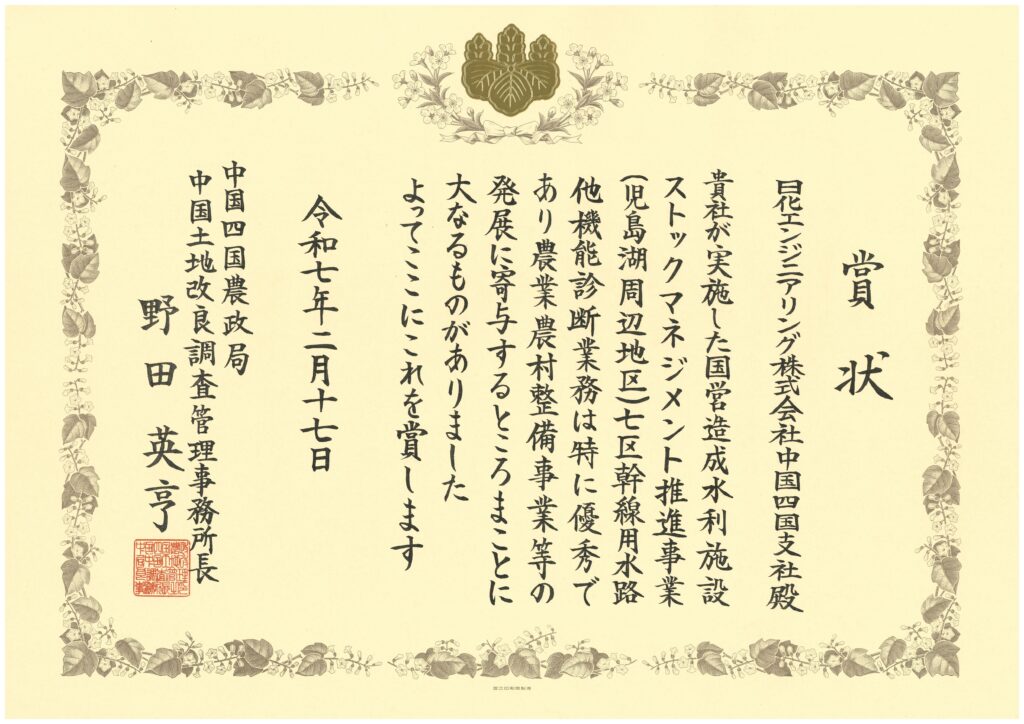 賞状
日化エンジニアリング株式会社中国四国支社殿
貴社が実施した国営造成水利施設
ストックマネジメント推進事業
(児島湖周辺地区)七区幹線用水路
他機能診断業務は特に優秀で
あり農業農村整備事業等の
発展に寄与するところまことに
大なるものがありました
よってここにこれを賞します
令和七年二月十七日
中国四国農政局
中国土地改良調査管理事務所長
野田英亨